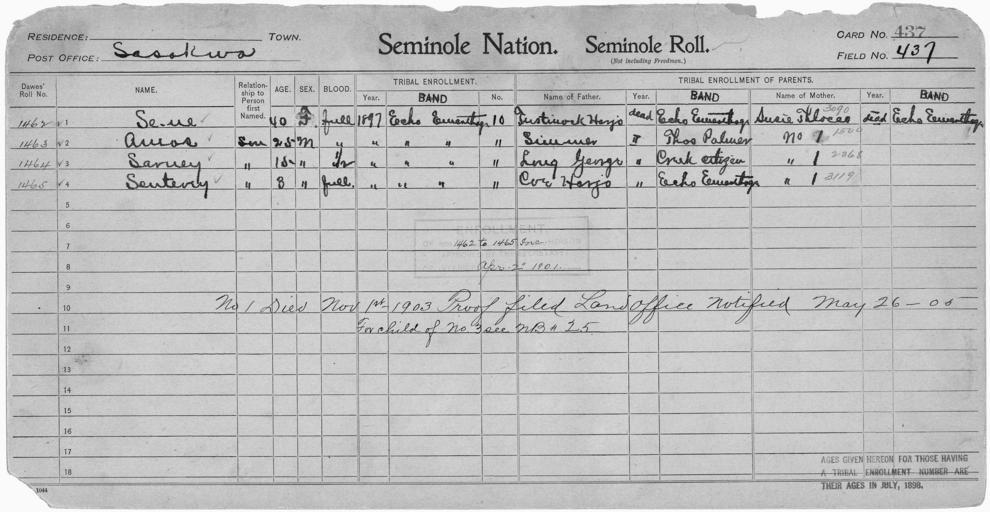 RESIDENCE: TOWN.
POST OFFICE: Sasakwa
Seminole Nation. Seminole Roll.
(Not including Freedmen.)
CARD NO. 437
FIELD NO. 437
Dawes' Roll No. NAME. Relationship to Person first Named. AGE. SEX. BLOOD. TRIBAL ENROLLMENT. TRIBAL ENROLLMENT OF PARENTS.
Year. BAND No. Name of Father. Year. BAND Name of Mother. Year. BAND
1462 1 40 F. full 1897 Echo 10 Harjo dead Echo Susie 3090 dead Echo
1463 2 Amos Son 25 M " " " " " Simmer " Thos Palmer No 1
1464 3 Sarney " 15 " 1/2 " " " " Long George " Creek citizen " 1
1465 4 " 8 " full " " " " Harjo " Echo " 1 3119
5
6
ENROLLMENT
7 1462 to 1465 Inc
8 Apr 2 1901
9
10 No 1 Died Nov 1st-1903 Proof filed Land office notified May 26-05
11 For child of No. 3 see NB # 25
12
13
14
15
16
17
18
AGES GIVEN HEREON FOR THOSE HAVING
A TRIBAL ENROLLMENT NUMBER ARE
THEIR AGES IN JULY, 1898.
1044